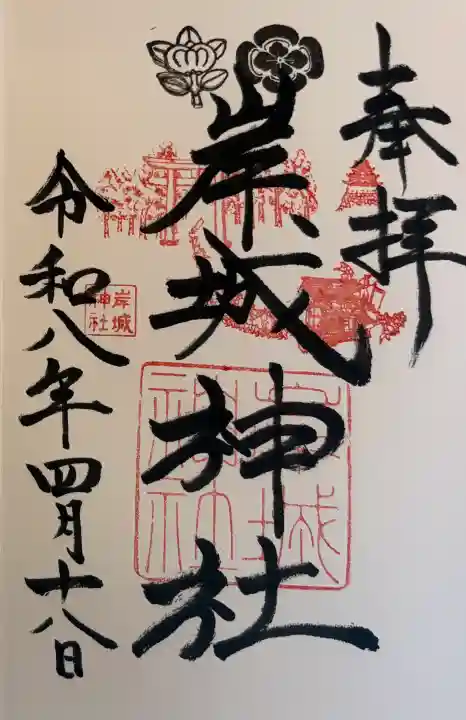 奉拝
岸城神社
岸城
神社
岸城
神社
令和八年四月十八日